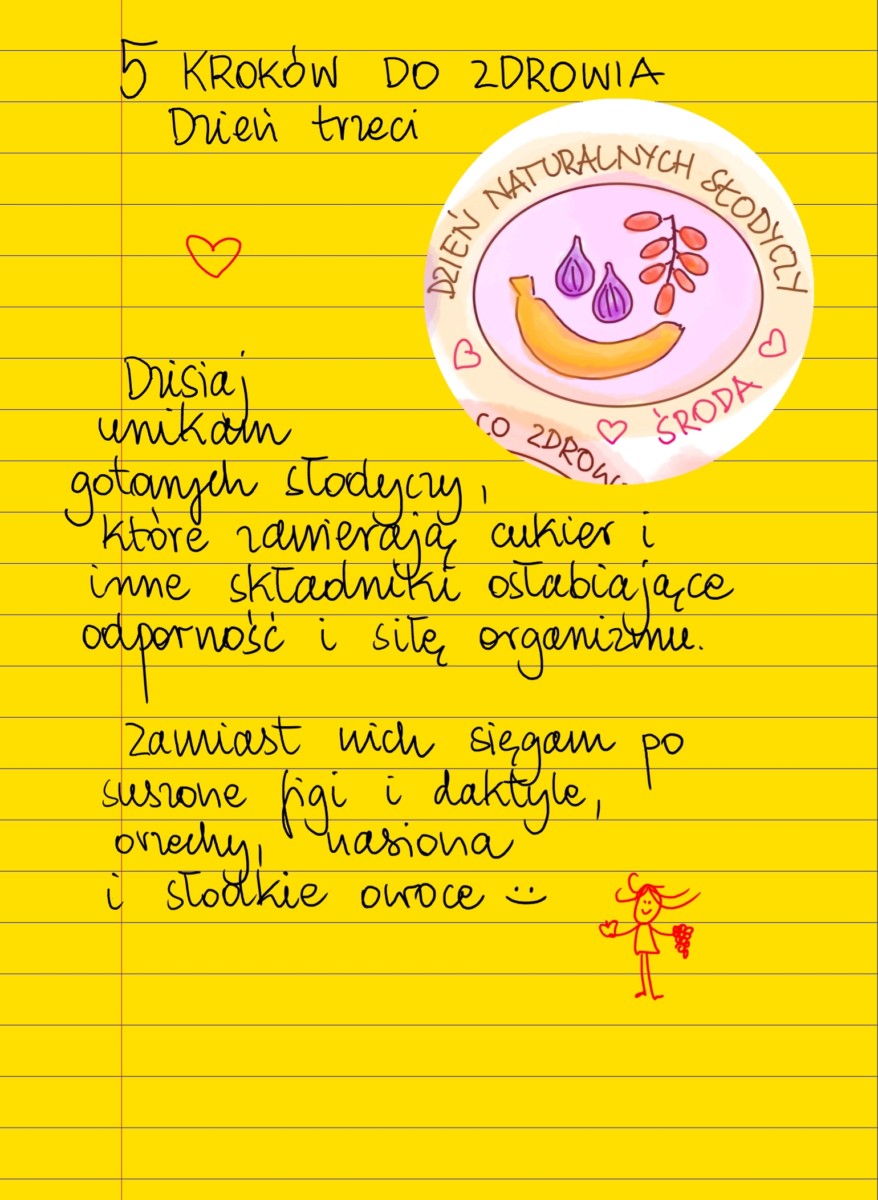 5 KROKÓW DO ZDROWIA
Dzień trzeci
DZIEŃ NATURALNYCH SŁODYCZY
ŚRODA
CO ZDROW
Dzisiaj
unikam
gotowych słodyczy,
które zawierają cukier i
inne składniki osłabiające
odporność i siłę organizmu.
Zamiast nich sięgam po
suszone figi i daktyle,
orzechy, nasiona
i słodkie owoce :)